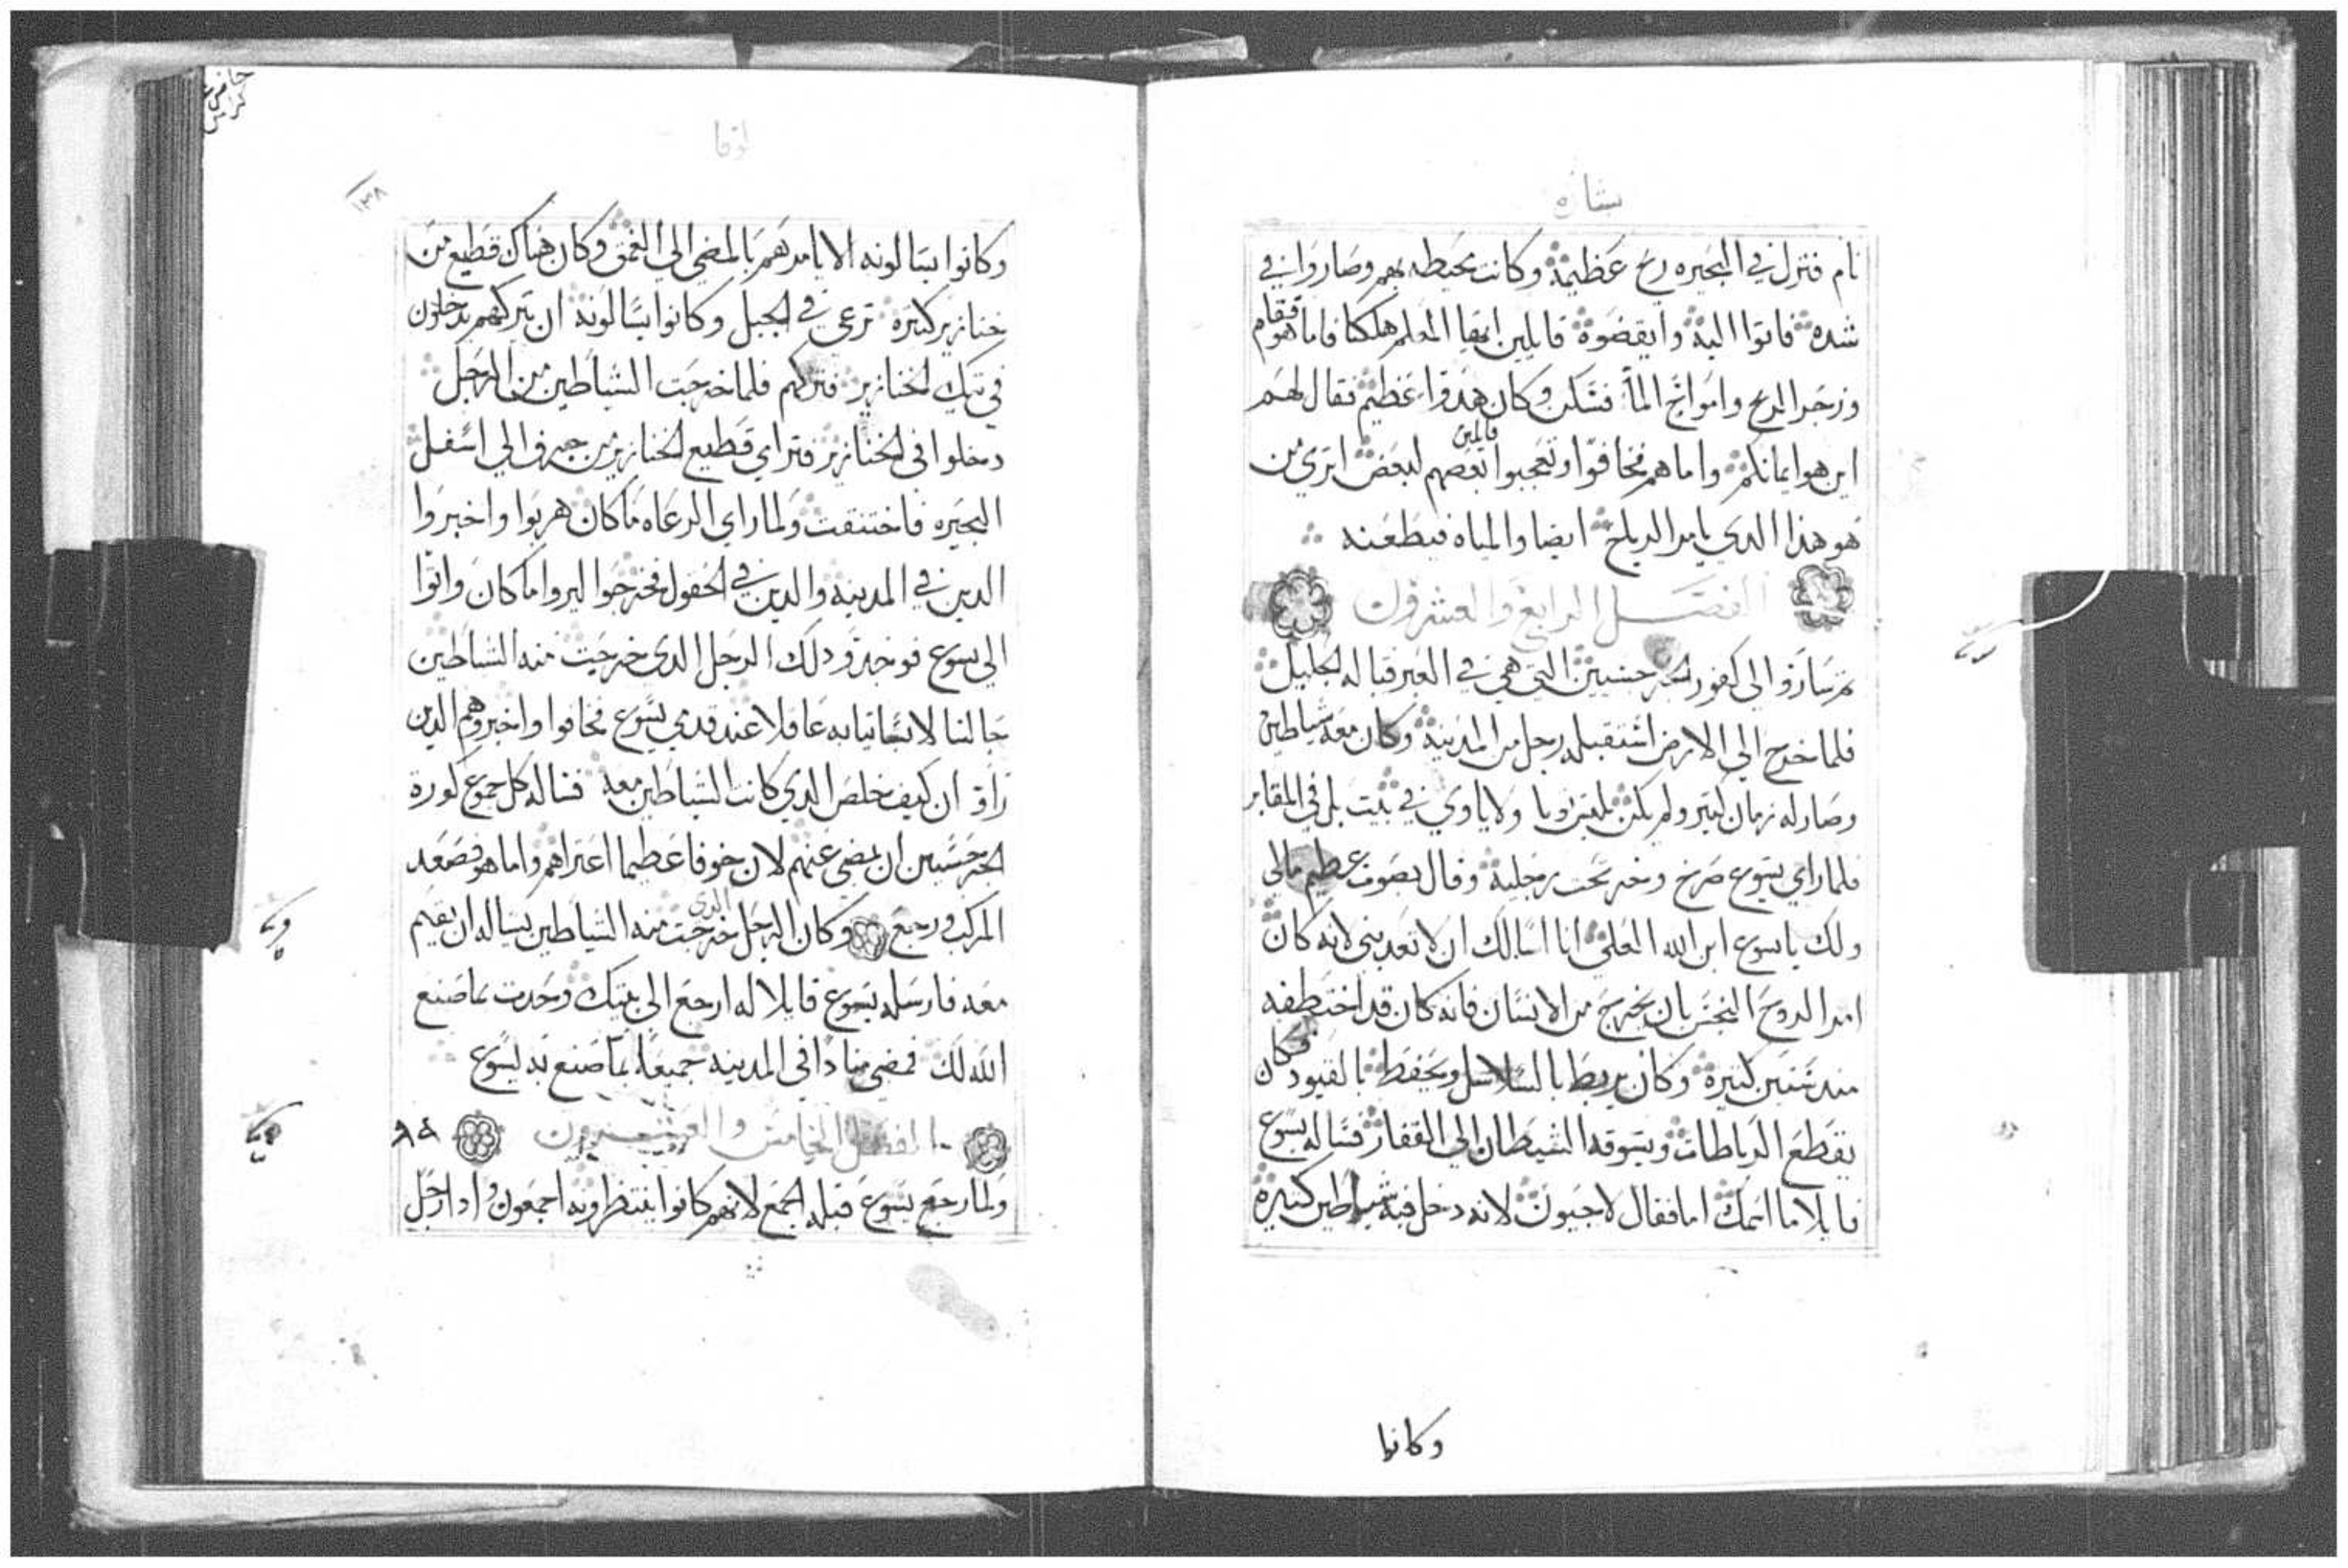 بشارة
نام فنزل في البحيره ريح عظيمة وكانت محيطه بهم وصاروا في
شده فاتوا اليه وايقضوه قايلين ايها المعلم هلكنا فاما هو فقام
وزجر الريح وامواج الماء فسكن وكان هدوا عظيم فقال لهم
اين هو ايمانكم واما هم فخافوا وتعجبوا قالين بعضهم لبعض اتري من
هو هذا الدي يامر الرياح ايضا والمياه فيطعنه
الفصل الرابع والعشرون
ثم ساروا الي كفور الجرجسيين التي هي في العبر قباله الجليل
فلما خرج الي الارض استقبله رجل من المدينة وكان معه شياطين
وصار له زمان كبير ولم يكن يلبس ثوبا ولا ياوي في بيت بل في المقابر
فلما راي يسوع صرخ وخر تحت رجليه وقال بصوت عظيم مالي
ولك يا يسوع ابن الله العلي انا اسالك ان لا تعدبني لانه كان
امر الروح النجس بان يخرج من الانسان فانه كان قد اختطفه
مند سنين كثيره وكان يربط بالسلاسل ويحفط بالقيود فكان
يقطع الرباطات ويسوقه الشيطان الي القفار فساله يسوع
قايلا ما اسمك اما فقال لاجيون لانه دخل فيه شياطين كثيره
وكانوا
لوقا
١٣٨
وكانوا يسالونه الا يامرهم بالمضي الي الغمق وكان هناك قطيع من
خنازير كثيره ترعي في الجبل وكانوا يسالونه ان يتركهم يدخلون
في تيك الخنازير فتركهم فلما خرجت الشياطين من الرجل
دخلوا في الخنازير فتراي قطيع الخنازير من جرف الي اسفل
البحيره فاختنقت ولما راي الرعاه ما كان هربوا واخبروا
الدين في المدينه والدين في الحقول فخرجوا ليروا ما كان واتوا
الي يسوع فوجدو دلك الرجل الدي خرجت منه الشياطين
جالسا لابسا ثيابه عاقلا عند قدمي يسوع فخافوا واخبروهم الدين
راو ان كيف خلص الدي كانت الشياطين معه فساله كل جموع كورة
الجرجسيين ان يمضي عنهم لان خوفا عظيما اعتراهم واما هو فصعد
المركب ورجع وكان الرجل الدي خرجت منه الشياطين يساله ان يقيم
معه فارسله يسوع قايلا له ارجع الي بيتك وحدت بما صنع
الله لك فمضي منادا في المدينه جميعها بما صنع به يسوع
الفصل الخامس والعشرون
ولما رجع يسوع قبله الجمع لانهم كانوا ينتظرونه اجمعون وادا رجل